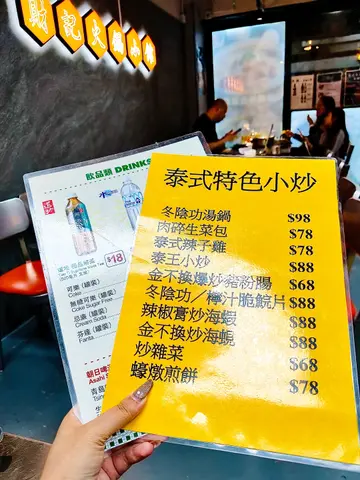 財記火鍋小炒
飲品類 DRINKS
$18
可樂(罐裝)
Coke
無糖可樂(罐裝)
Coke Sugar Free
忌廉(罐裝)
Cream Soda
芬達(罐裝)
Fanta
朝日啤
Asahi
青島
生
泰式特色小炒
冬陰功湯鍋 $98
肉碎生菜包 $78
泰式辣子雞 $78
泰王小炒 $88
金不換爆炒豬粉腸 $68
冬陰功/檸汁脆鯇片 $88
辣椒膏炒海蝦 $88
金不換炒海蜆 $88
炒雜菜 $68
蠔燉煎餅 $78